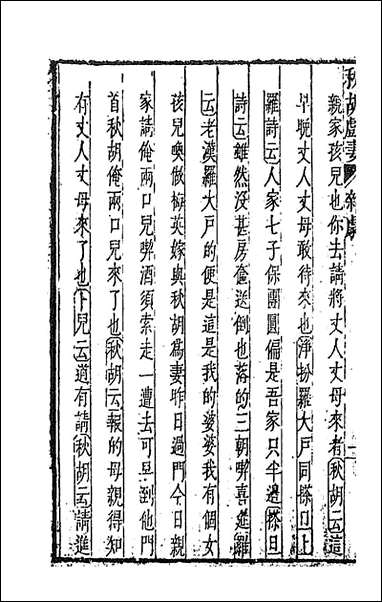 秋胡戲妻　雜劇　二
親家孩兒也你去請將丈人丈母來者秋胡云這
早晚丈人丈母敢待來也淨扮羅大戶同搽旦上
羅詩云人家七子保團圓偏是吾家只半邊搽旦
詩云雖然沒甚房奩送倒也落的三朝喫喜筵羅
云老漢羅大戶的便是這是我的婆婆我有個女
孩兒喚做梅英嫁與秋胡爲妻昨日過門今日親
家請俺兩口兒喫酒須索走一遭去可早到他門
首秋胡俺兩口兒來了也秋胡云報的母親得知
有丈人丈母來了也卜兒云道有請秋胡云請進